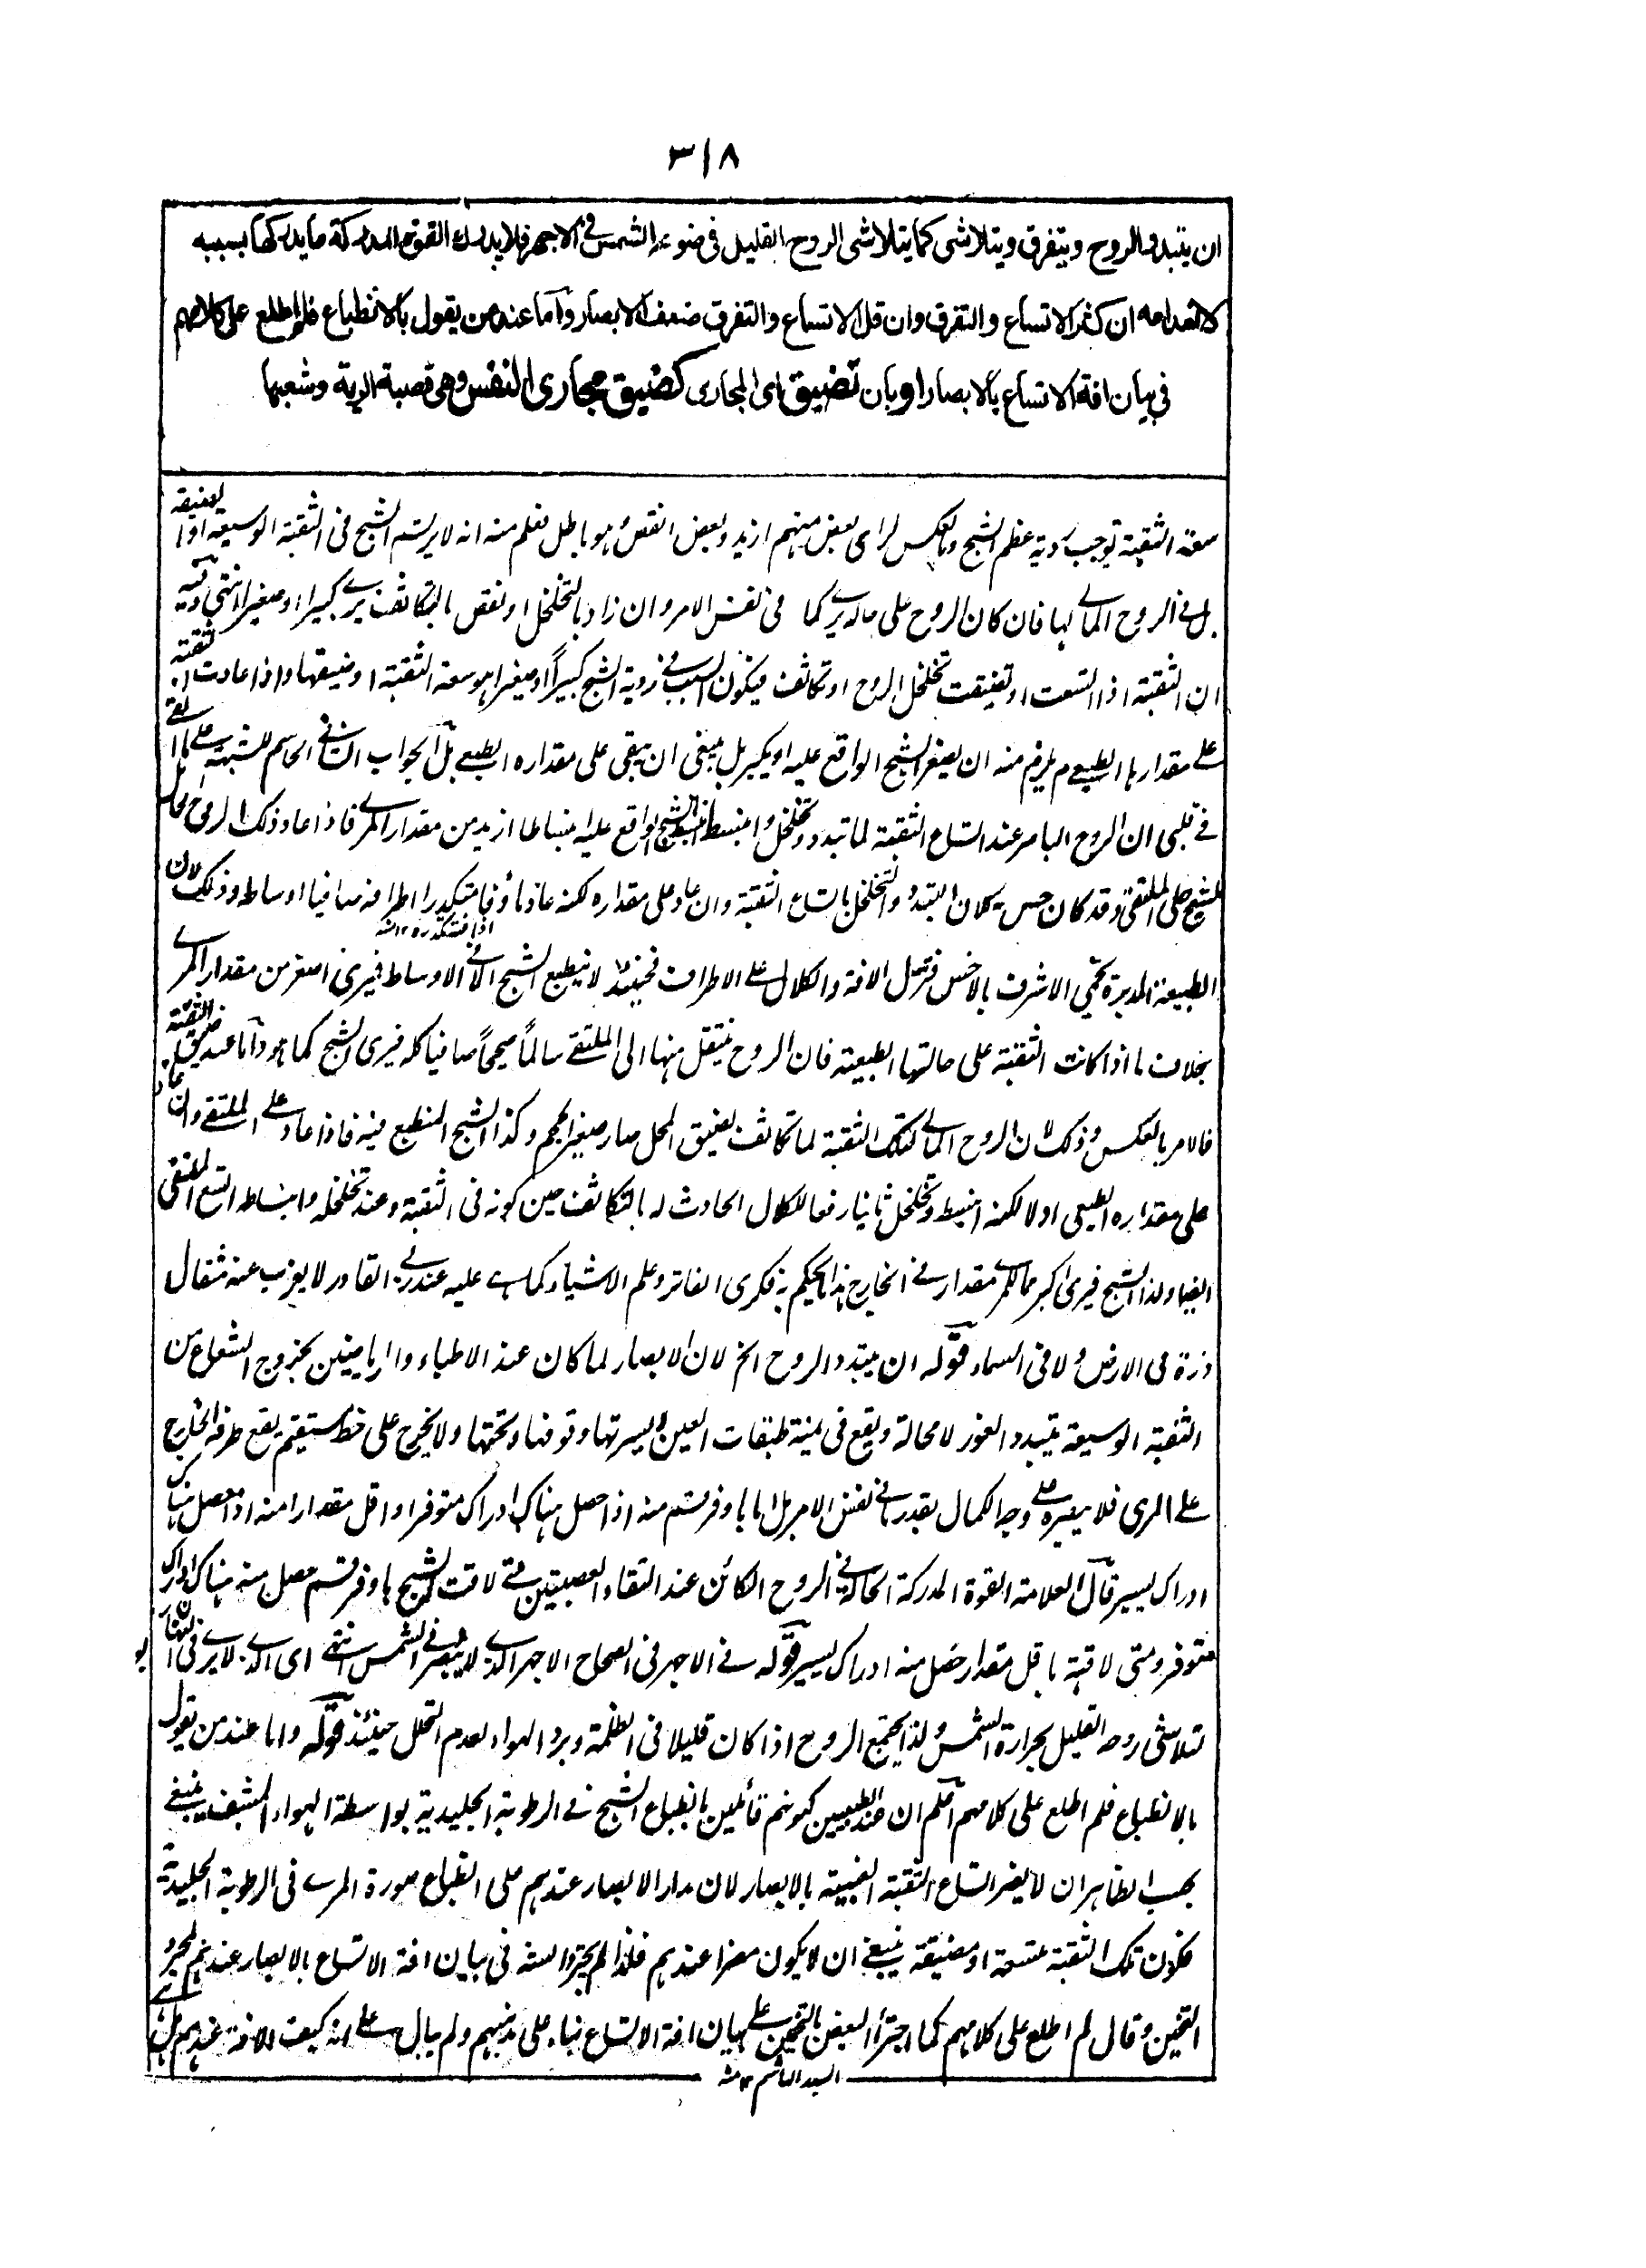 ٣١٨
ان يتبدد الروح ويتفرق ويتلاشى كما يتلاشى الروح القليل فى ضوء الشمس فى الاجهر فلا يدرك القوة المدركة ما يدركها بسببه
لانعدامه ان كثر الاتساع والتفرق وان قل الاتساع والتفرق ضعف الابصار واما عند من يقول بالانطباع فلم اطلع على كلامهم
فى بيان افة الاتساع بالابصار او بان تضيق اى المجارى كضيق مجارى النفس وهى قصبة الرية وشعبها
سعة الثقبة توجب روية عظم الشبح وبالعكس لراى بعض منهم ازيد وبعض انقص وهو باطل فعلم منه انه لا يرتسم الشبح فى الثقبة الوسيعة او الضيقة
بل فى الروح المالى لها فان كان الروح على حاله يرى كما فى نفس الامر وان زاد بالتخلخل او نقص بالتكاثف يرى كبيرا او صغيرا انتهى وفيه
ان الثقبة اذا اتسعت او تضيقت تخلخل الروح او تكاثف فيكون السبب فى روية الشبح كبيراً او صغيرا هو سعة الثقبة او ضيقها واذا عادت الثقبة
على مقدارها الطبيعى لم يلزم منه ان يصغر الشبح الواقع عليه او يكبر بل ينبغى ان يبقى على مقداره الطبيعى بل الجواب الثانى الحاسم للشبهة على ما القى
فى قلبى ان الروح الباصر عند اتساع الثقبة لما تبدد وتخلخل وانبسط انبسط الشبح الواقع عليه انبساطا ازيد من مقدار المرى فاذا عاد ذلك الروح الحامل
للشبح على الملتقى وقد كان حس بكلال التبدد والتخلخل باتساع الثقبة وان عاد على مقداره لكنه عاد ماؤفا متكدرا اطرافه صافيا اوساطه وذلك لان
اذا
الطبيعة المدبرة تحمى الاشرف بالاخس فترسل الافة والكلال على الاطراف فحينئذ لا ينطبع الشبح الا فى الاوساط فيرى اصغر من مقدار المرى
بخلاف ما اذا كانت الثقبة على حالتها الطبيعية فان الروح ينتقل منها الى الملتقى سالماً صحيحاً صافيا كله فيرى الشبح كما هو واما عند ضيق الثقبة
فالامر بالعكس وذلك لان الروح المالى لتلك الثقبة لما تكاثف لضيق المحل صار صغير الحجم وكذا الشبح المنطبع فيه فاذا عاد على الملتقى وان عاد
على مقداره الطبيعى اولا لكنه انبسط وتخلخل ثانيا رفعا للكلال الحادث له بالتكاثف حين كونه فى الثقبة وعند تخلخله وانبساطه اتسع الملتقى
ايضا وكذا الشبح فيرى اكبر مما للمرى مقدار فى الخارج هذا لحكم به فكرى الفاتر وعلم الاشياء كما هى عليه عند ربى القادر لا يعزب عنه مثقال
ذرة فى الارض ولا فى السماء قوله ان يتبدد الروح الخ لان الابصار لما كان عند الاطباء والرياضيين بخروج الشعاع من
الثقبة الوسيعة يتبدد النور لا محالة ويقع فى يمنة طبقات العين ويسرتها وفوقها وتحتها ولا يخرج على خط مستقيم يقع طرفه الخارج
على المرى فلا يبصره على وجه الكمال بقدر ما فى نفس الامر بل اما باوفر قسم منه اذا حصل هناك ادراك متوفر او اقل مقدارا منه اذا حصل هناك
ادراك يسير قال العلامة القوة المدركة الحالة فى الروح الكائن عند التقاء العصبتين متى لاقت الشبح باوفر قسم حصل منه هناك ادراك
متوفر ومتى لاقته باقل مقدار حصل منه ادراك يسير قوله فى الاجهر فى الصحاح الاجهر الذى لا يبصر فى الشمس انتهى اى الذى لا يرى فى النهار
لتلاشى روحه القليل بحرارة الشمس ولذا يجتمع الروح اذا كان قليلا فى الظلمة وبرد الهواء لعدم التحلل حينئذ قوله واما عند من يقول
بالانطباع فلم اطلع على كلامهم اعلم ان عند الطبيعيين كونهم قائلين بانطباع الشبح فى الرطوبة الجليدية بواسطة الهواء المشف ينبغى
بحسب الظاهر ان لا يضر اتساع الثقبة العنبية بالابصار لان مدار الابصار عندهم على انطباع صورة المرى فى الرطوبة الجليدية
فكون تلك الثقبة متسعة او مضيقة ينبغى ان لا يكون مضرا عندهم فلذا لم يجترء الشارح فى بيان افة الاتساع بالابصار عندهم
التخمين وقال لم اطلع على كلامهم كما اجترأ البعض بالتخمين على بيان افة الاتساع بناء على مذهبهم ولم يبال على انه كيف الافة عندهم
السيد الهاشم ١٢ منه